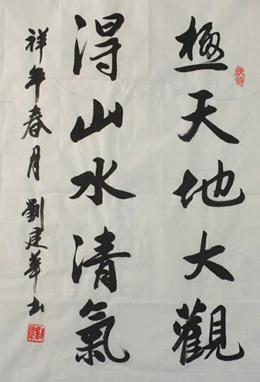 極天地大觀
得山水清氣
祥年春月 劉建華書